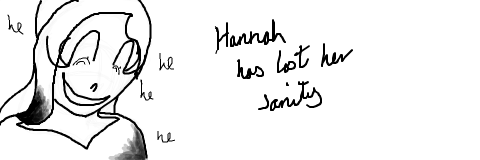 he
Hannah
has lost her
he
sanity
he
he